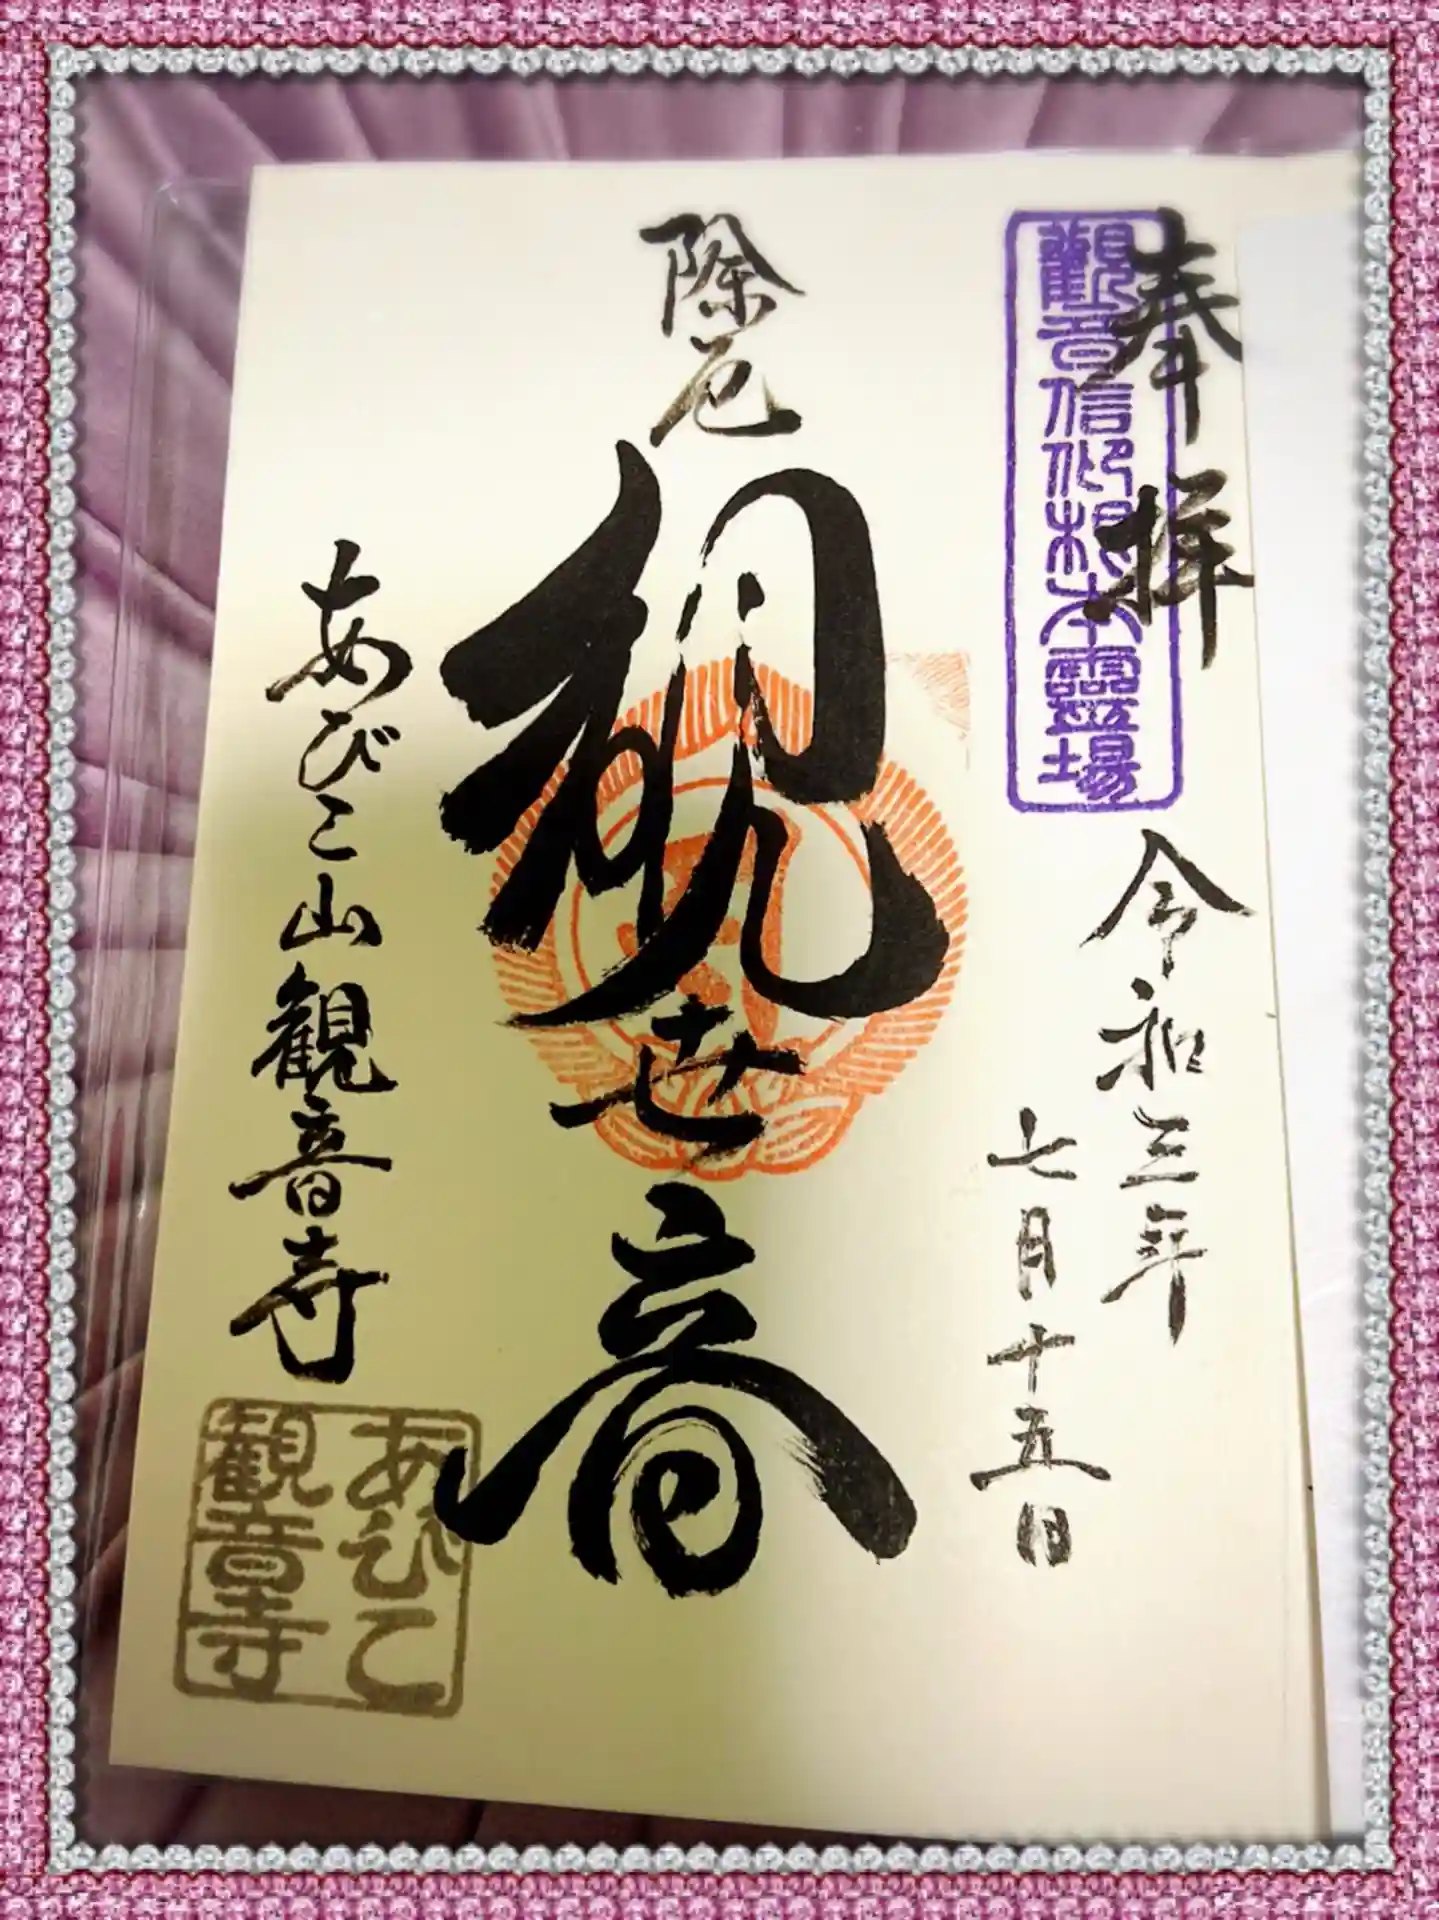 奉拝
観音信仰根本霊場
令和三年
七月十五日
除厄
観世音
あびこ山観音寺
あびこ
観音寺